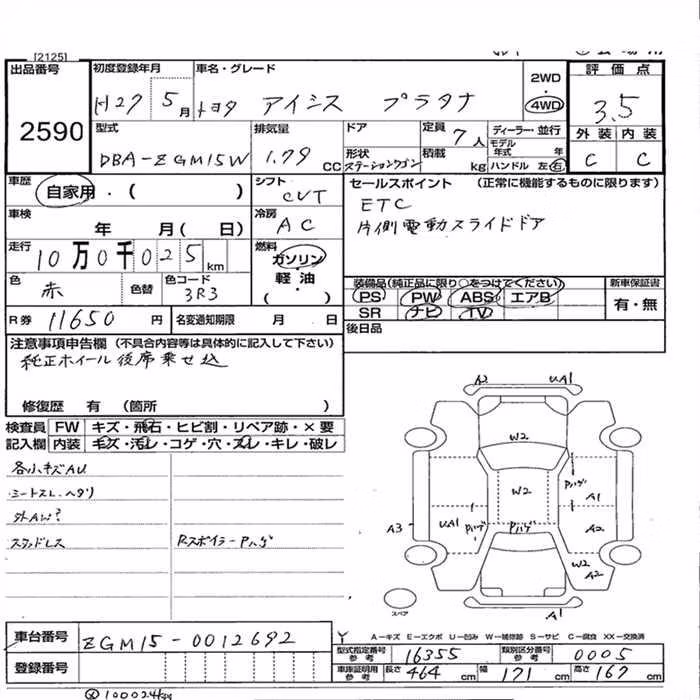 [2125]
出品番号 2590
初度登録年月 H27 5月
車名・グレード トヨタ アイシス プラタナ
2WD 4WD
評価点 3.5
外装 内装
C C
型式 DBA-ZGM15W
排気量 1.79 CC
ドア
形状 ステーションワゴン
定員 7人
積載 kg
ディーラー・並行
モデル年式 年
ハンドル 左 右
車歴 自家用・( )
シフト CVT
セールスポイント (正常に機能するものに限ります)
ETC
片側電動スライドドア
車検 年 月( 日)
冷房 AC
走行 10万0千025km
燃料 ガソリン・軽油・( )
色 赤 色替
色コード 3R3
装備品(純正品に限り○をつけてください)
PS PW ABS エアB
SR ナビ TV
新車保証書 有・無
R券 11650円
名変通知期限 月 日
後日品
注意事項申告欄 (不具合内容等は具体的に記入して下さい)
純正ホイール後席乗せ込
修復歴 有 (箇所 )
検査員記入欄
FW キズ・飛石・ヒビ割・リペア跡・×要
内装 キズ・汚レ・コゲ・穴・スレ・キレ・破レ
各小キズAU
シートスレ・ヘタリ
外AW?
スタッドレス
Rスポイラー Pハゲ
A2 UA1
W2
W2 Pハゲ A1
A3 UA1 Pハゲ Pハゲ A2
W2 A2
A1
スペア
車台番号 ZGM15-0012692
登録番号
A-キズ E-エクボ U-凹み W-補修跡 S-サビ C-腐食 XX-交換済
型式指定番号参考 16355
類別区分番号参考 0005
車庫証明用参考 長さ 464cm 幅 171cm 高さ 167cm